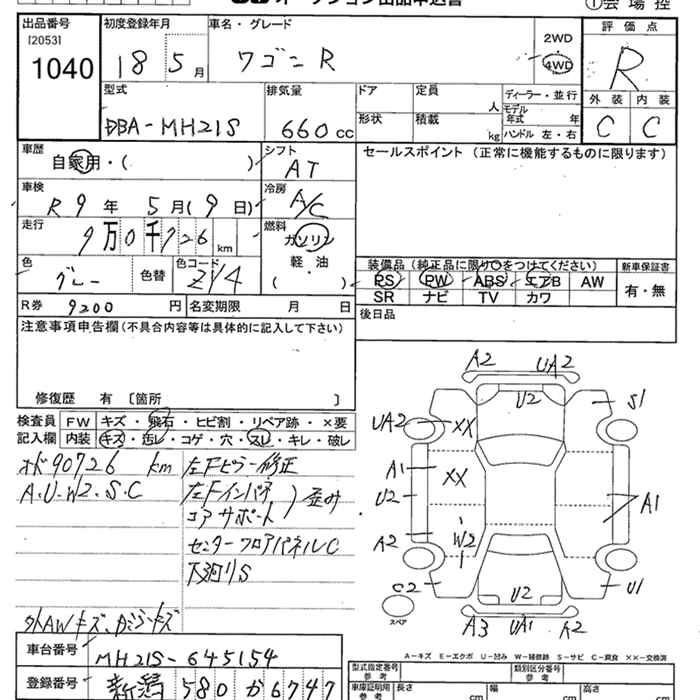 オークション出品申込書
①会場控
出品番号
[2053]
1040
初度登録年月
18 5月
車名・グレード
ワゴン R
2WD
4WD
評価点
R
外装 内装
C C
型式
DBA-MH21S
排気量
660cc
ドア
形状
定員
人
積載
kg
ディーラー・並行
モデル年式 年
ハンドル 左・右
車歴
自家用・( )
シフト
AT
セールスポイント (正常に機能するものに限ります)
車検
R 9 年 5 月 (9 日)
冷房
A/C
走行
9万0千726 km
燃料
ガソリン
軽・油
( )
色
グレー
色替
色コード
ZY4
装備品 (純正品に限り○をつけてください)
PS PW ABS エアB AW
SR ナビ TV カワ
新車保証書
有・無
R券 9200 円
名変期限 月 日
後日品
注意事項申告欄(不具合内容等は具体的に記入して下さい)
修復歴 有 〔箇所 〕
検査員記入欄
FW キズ・飛石・ヒビ割・リペア跡・×要
内装 キズ・汚レ・コゲ・穴・スレ・キレ・破レ
オド90726 km
A.U.W2.S.C
外AWキズ、
左Fピラー修正
左Fインパネ
コアサポート
歪み
センターフロアパネルC
下廻りS
A2 UA2
U2
S1
UA2 XX
A1 XX
U2
A1
A2 W2
C2
U2
U1
A3 UA1 A2
スペア
A-キズ E-エクボ U-凹み W-補修跡 S-サビ C-腐食 XX-交換済
車台番号
MH21S-645154
登録番号
新潟 580 か 6747
型式指定番号
参考
類別区分番号
参考
車庫証明用
参考
長さ cm
幅 cm
高さ cm